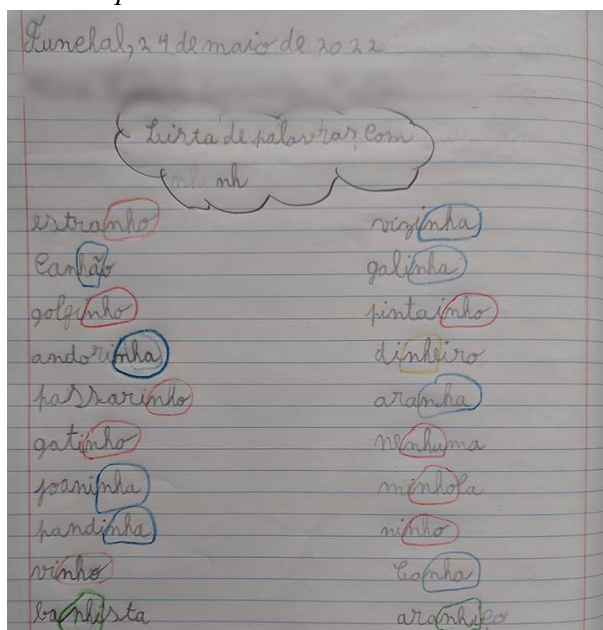 Funchal, 24 de maio de 2022
Lista de palavras com
nh
estranho
Canhão
golfinho
andorinha
passarinho
gatinho
joaninha
pandinha
vinho
banhista
vizinha
galinha
pintainho
dinheiro
aranha
nenhuma
ninho
aranhiço